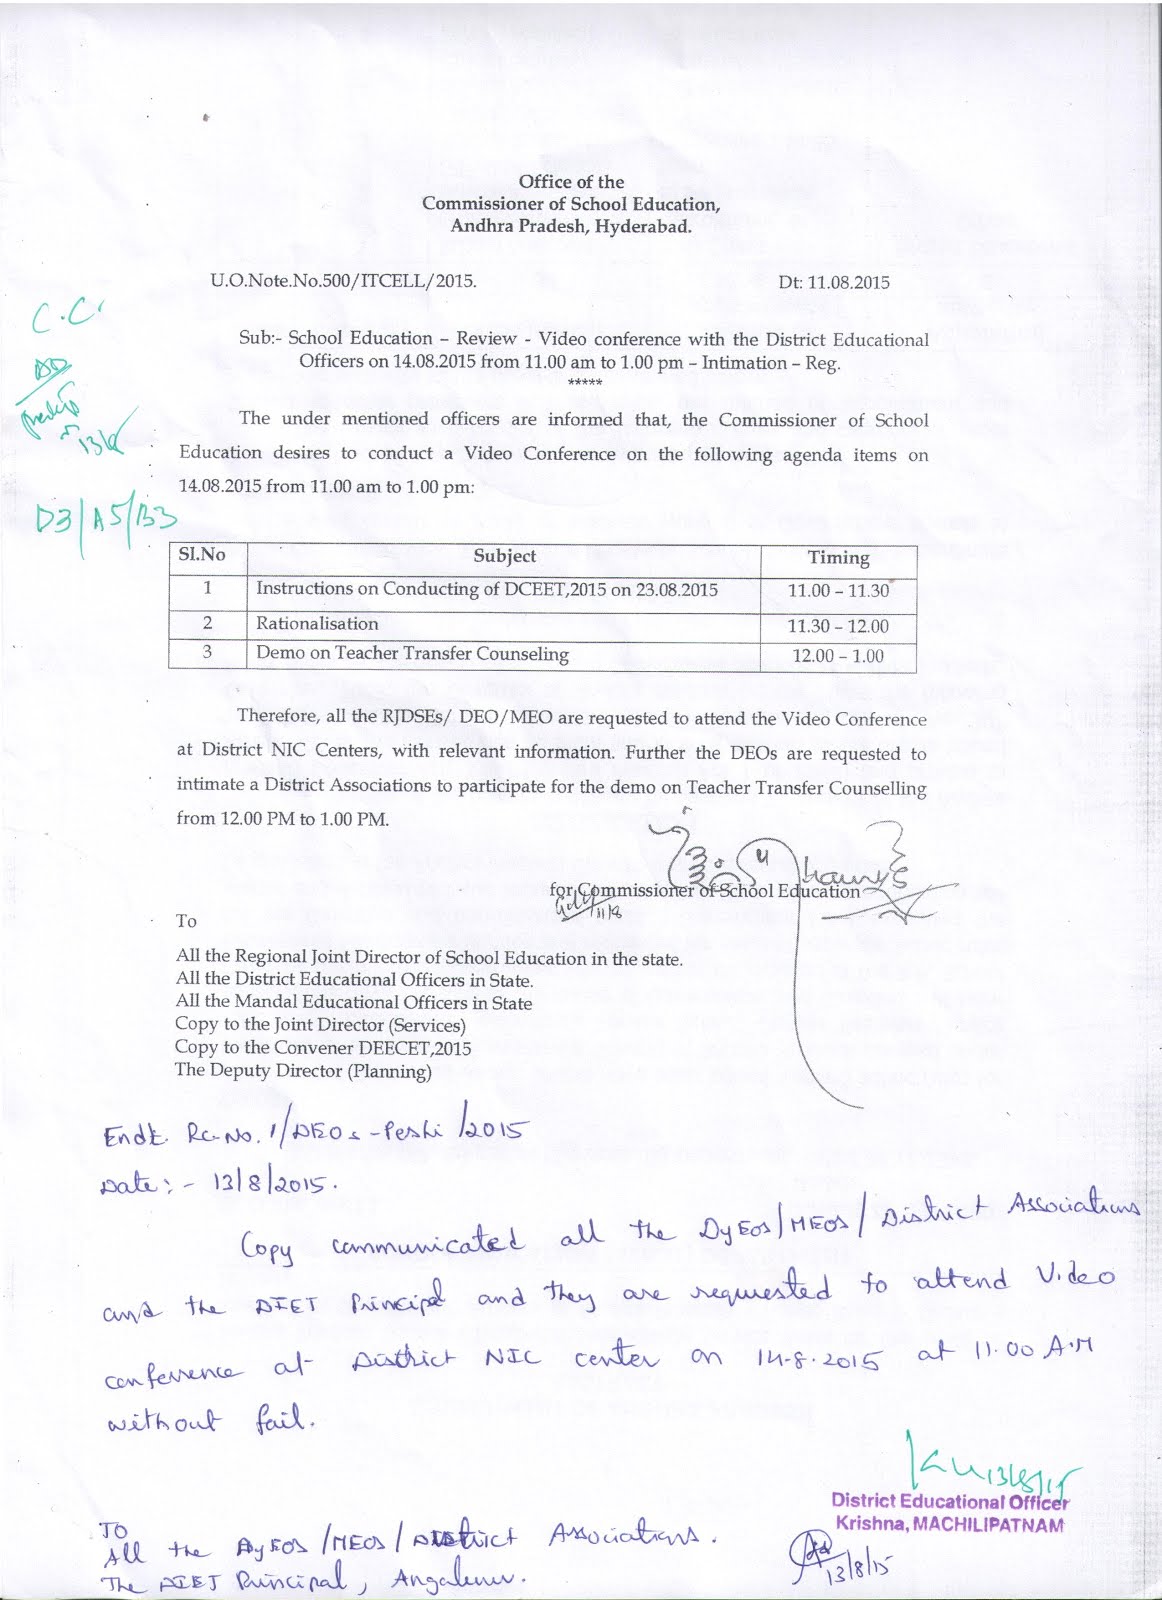 Office of the
Commissioner of School Education,
Andhra Pradesh, Hyderabad.
U.O.Note.No.500/ITCELL/2015. Dt: 11.08.2015
C.C.
Sub:- School Education – Review - Video conference with the District Educational
Officers on 14.08.2015 from 11.00 am to 1.00 pm – Intimation – Reg.
*****
The under mentioned officers are informed that, the Commissioner of School
Education desires to conduct a Video Conference on the following agenda items on
14.08.2015 from 11.00 am to 1.00 pm:
13/8
D3/A5/B3
Sl.No Subject Timing
1 Instructions on Conducting of DCEET,2015 on 23.08.2015 11.00 – 11.30
2 Rationalisation 11.30 – 12.00
3 Demo on Teacher Transfer Counseling 12.00 – 1.00
Therefore, all the RJDSEs/ DEO/MEO are requested to attend the Video Conference
at District NIC Centers, with relevant information. Further the DEOs are requested to
intimate a District Associations to participate for the demo on Teacher Transfer Counselling
from 12.00 PM to 1.00 PM.
for Commissioner of School Education
11/8
To
All the Regional Joint Director of School Education in the state.
All the District Educational Officers in State.
All the Mandal Educational Officers in State
Copy to the Joint Director (Services)
Copy to the Convener DEECET,2015
The Deputy Director (Planning)
Endt. Rc.No. 1/DEOs-Peshi/2015
Date:- 13/8/2015.
Copy communicated all the DyEOs/MEOs/District Associations
and the DIET Principal and they are requested to attend Video
conference at District NIC center on 14.8.2015 at 11.00 A.M
without fail.
13/8/15
District Educational Officer
Krishna, MACHILIPATNAM
13/8/15
To
All the DyEOs/MEOs/District Associations.
The DIET Principal, Angaluru.